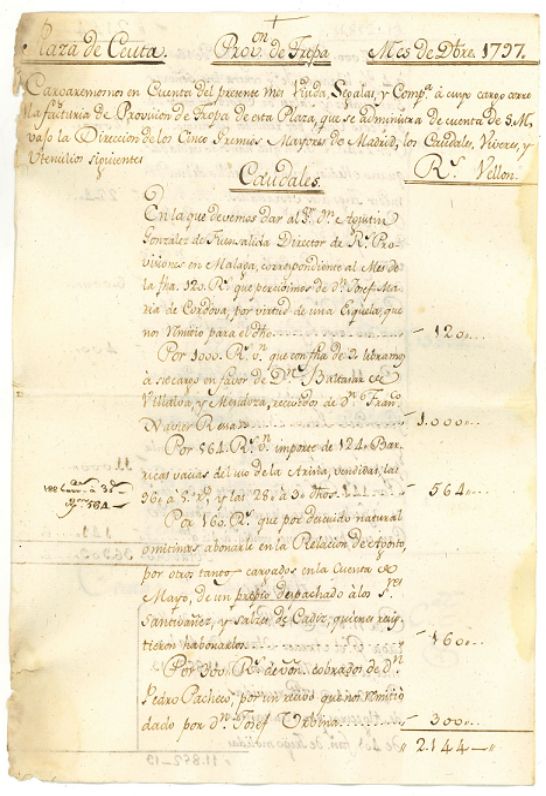 Plaza de Ceuta. Prov.on de Tropa Mes de Dbre. 1797.
Cargaremonos en Cuenta del presente mes Viuda, Segalas, y Comp.a á cuyo cargo corre
la factoria de Provicion de Tropa de esta Plaza, que se administra de cuenta de S.M.
vajo la Direccion de los Cinco Gremios Mayores de Madrid, los Caudales, Viveres, y
Utencilios siguientes
R.s Vellon.
Caudales.
En la que devemos dar al S.or D.n Agustin
Gonzalez de Fuensalida Director de R.s Pro
visiones en Malaga, correspondiente al Mes de
la fha. 120. R.s que percivimos de D.n Josef Ma
ria de Cordova, por virtud de una Esquela, que
nos remitio para el dho. 120....
Por 1000. R.s v.n que con fha de 2 libramos
á su cargo en favor de D.n Baltasar de
Villalva, y Mendoza, recividos de D.n Fran.co
Xavier 1.000....
Por 564. R.s v.n importe de 124. Bar
ricas vacias del uso de la Arina, vendidas, las
96. á 5. r.s, y las 28. á 3. dhos. 564....
564
Por 160. R.s que por descuido natural
omitimos abonarle en la Relacion de Agosto,
por otros tantos cargados en la Cuenta de
Mayo, de un propio despachado á los S.res
Santibáñez, y de Cadiz, quienes
tieron habonarlos 160....
Por 300. R.s de von. cobrados de D.n
Pedro Pacheco, por un recivo que nos remitio
dado por D.n Josef Urbina. 300....
2.144